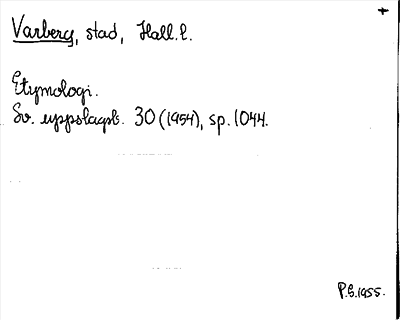 +
Varberg, stad, Hall. l.
Etymologi.
Sv. uppslagsb. 30 (1954), sp. 1044.
P.G. 1955.